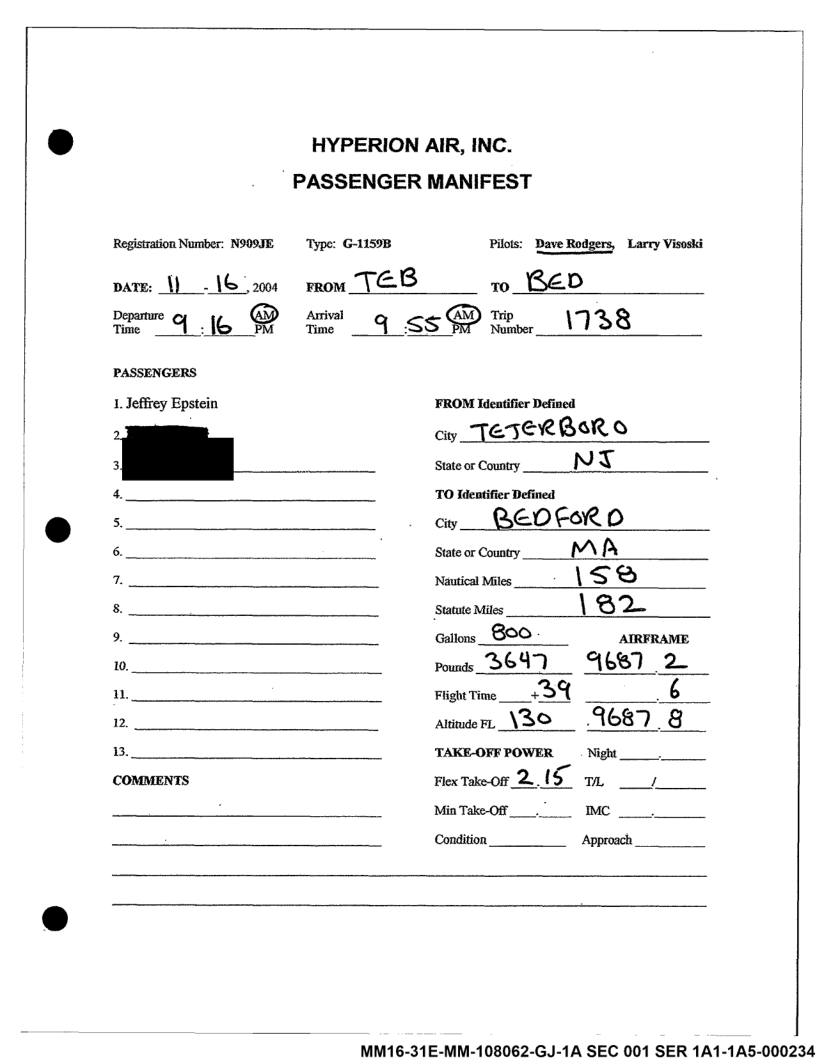 HYPERION AIR, INC.
PASSENGER MANIFEST
Registration Number: N909JE Type: G-1159B Pilots: Dave Rodgers, Larry Visoski
DATE: 11 - 16, 2004 FROM TEB TO BED
Departure Time 9 : 16 AM PM Arrival Time 9 :55 AM PM Trip Number 1738
PASSENGERS
1. Jeffrey Epstein FROM Identifier Defined
2. City TETERBORO
3. State or Country NJ
4. TO Identifier Defined
5. City BEDFORD
6. State or Country MA
7. Nautical Miles 158
8. Statute Miles 182
9. Gallons 800 AIRFRAME
10. Pounds 3647 9687.2
11. Flight Time +39 .6
12. Altitude FL 130 9687.8
13. TAKE-OFF POWER Night
COMMENTS Flex Take-Off 2.15 T/L /
Min Take-Off . IMC .
Condition Approach
MM16-31E-MM-108062-GJ-1A SEC 001 SER 1A1-1A5-000234